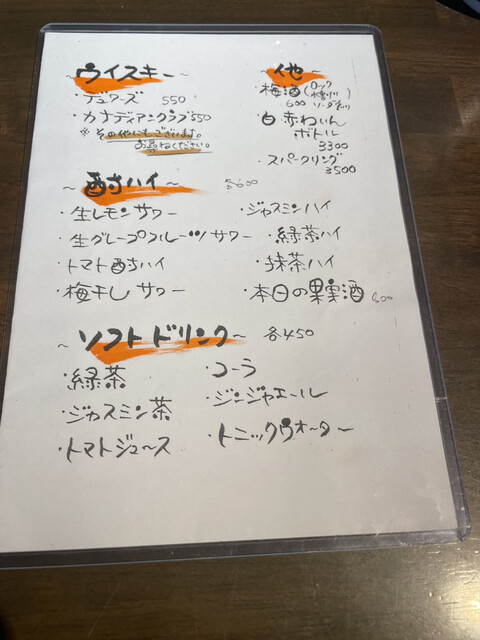 ～ウイスキー～
・デュワーズ 550
・カナディアンクラブ 550
※その他にもございます。
お尋ねください。
～他～
梅酒(ロック 水割り
600 ソーダ割り)
・白赤わいん
ボトル
3300
・スパークリング
3500
～酎ハイ～
・生レモンサワー
・生グレープフルーツサワー
・トマト酎ハイ
・梅干しサワー
・ジャスミンハイ
・緑茶ハイ
・抹茶ハイ
・本日の果実酒 600
～ソフトドリンク～ 各450
・緑茶
・ジャスミン茶
・トマトジュース
・コーラ
・ジンジャエール
・トニックウォーター